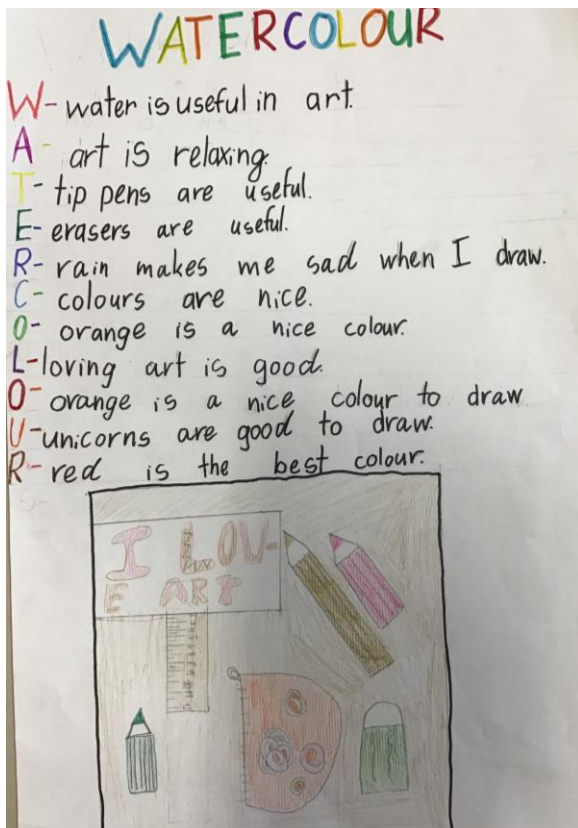 WATERCOLOUR
W- water is useful in art.
A- art is relaxing.
T- tip pens are useful.
E- erasers are useful.
R- rain makes me sad when I draw.
C- colours are nice.
O- orange is a nice colour.
L- loving art is good.
O- orange is a nice colour to draw
U- unicorns are good to draw.
R- red is the best colour.
I LOV-
E ART